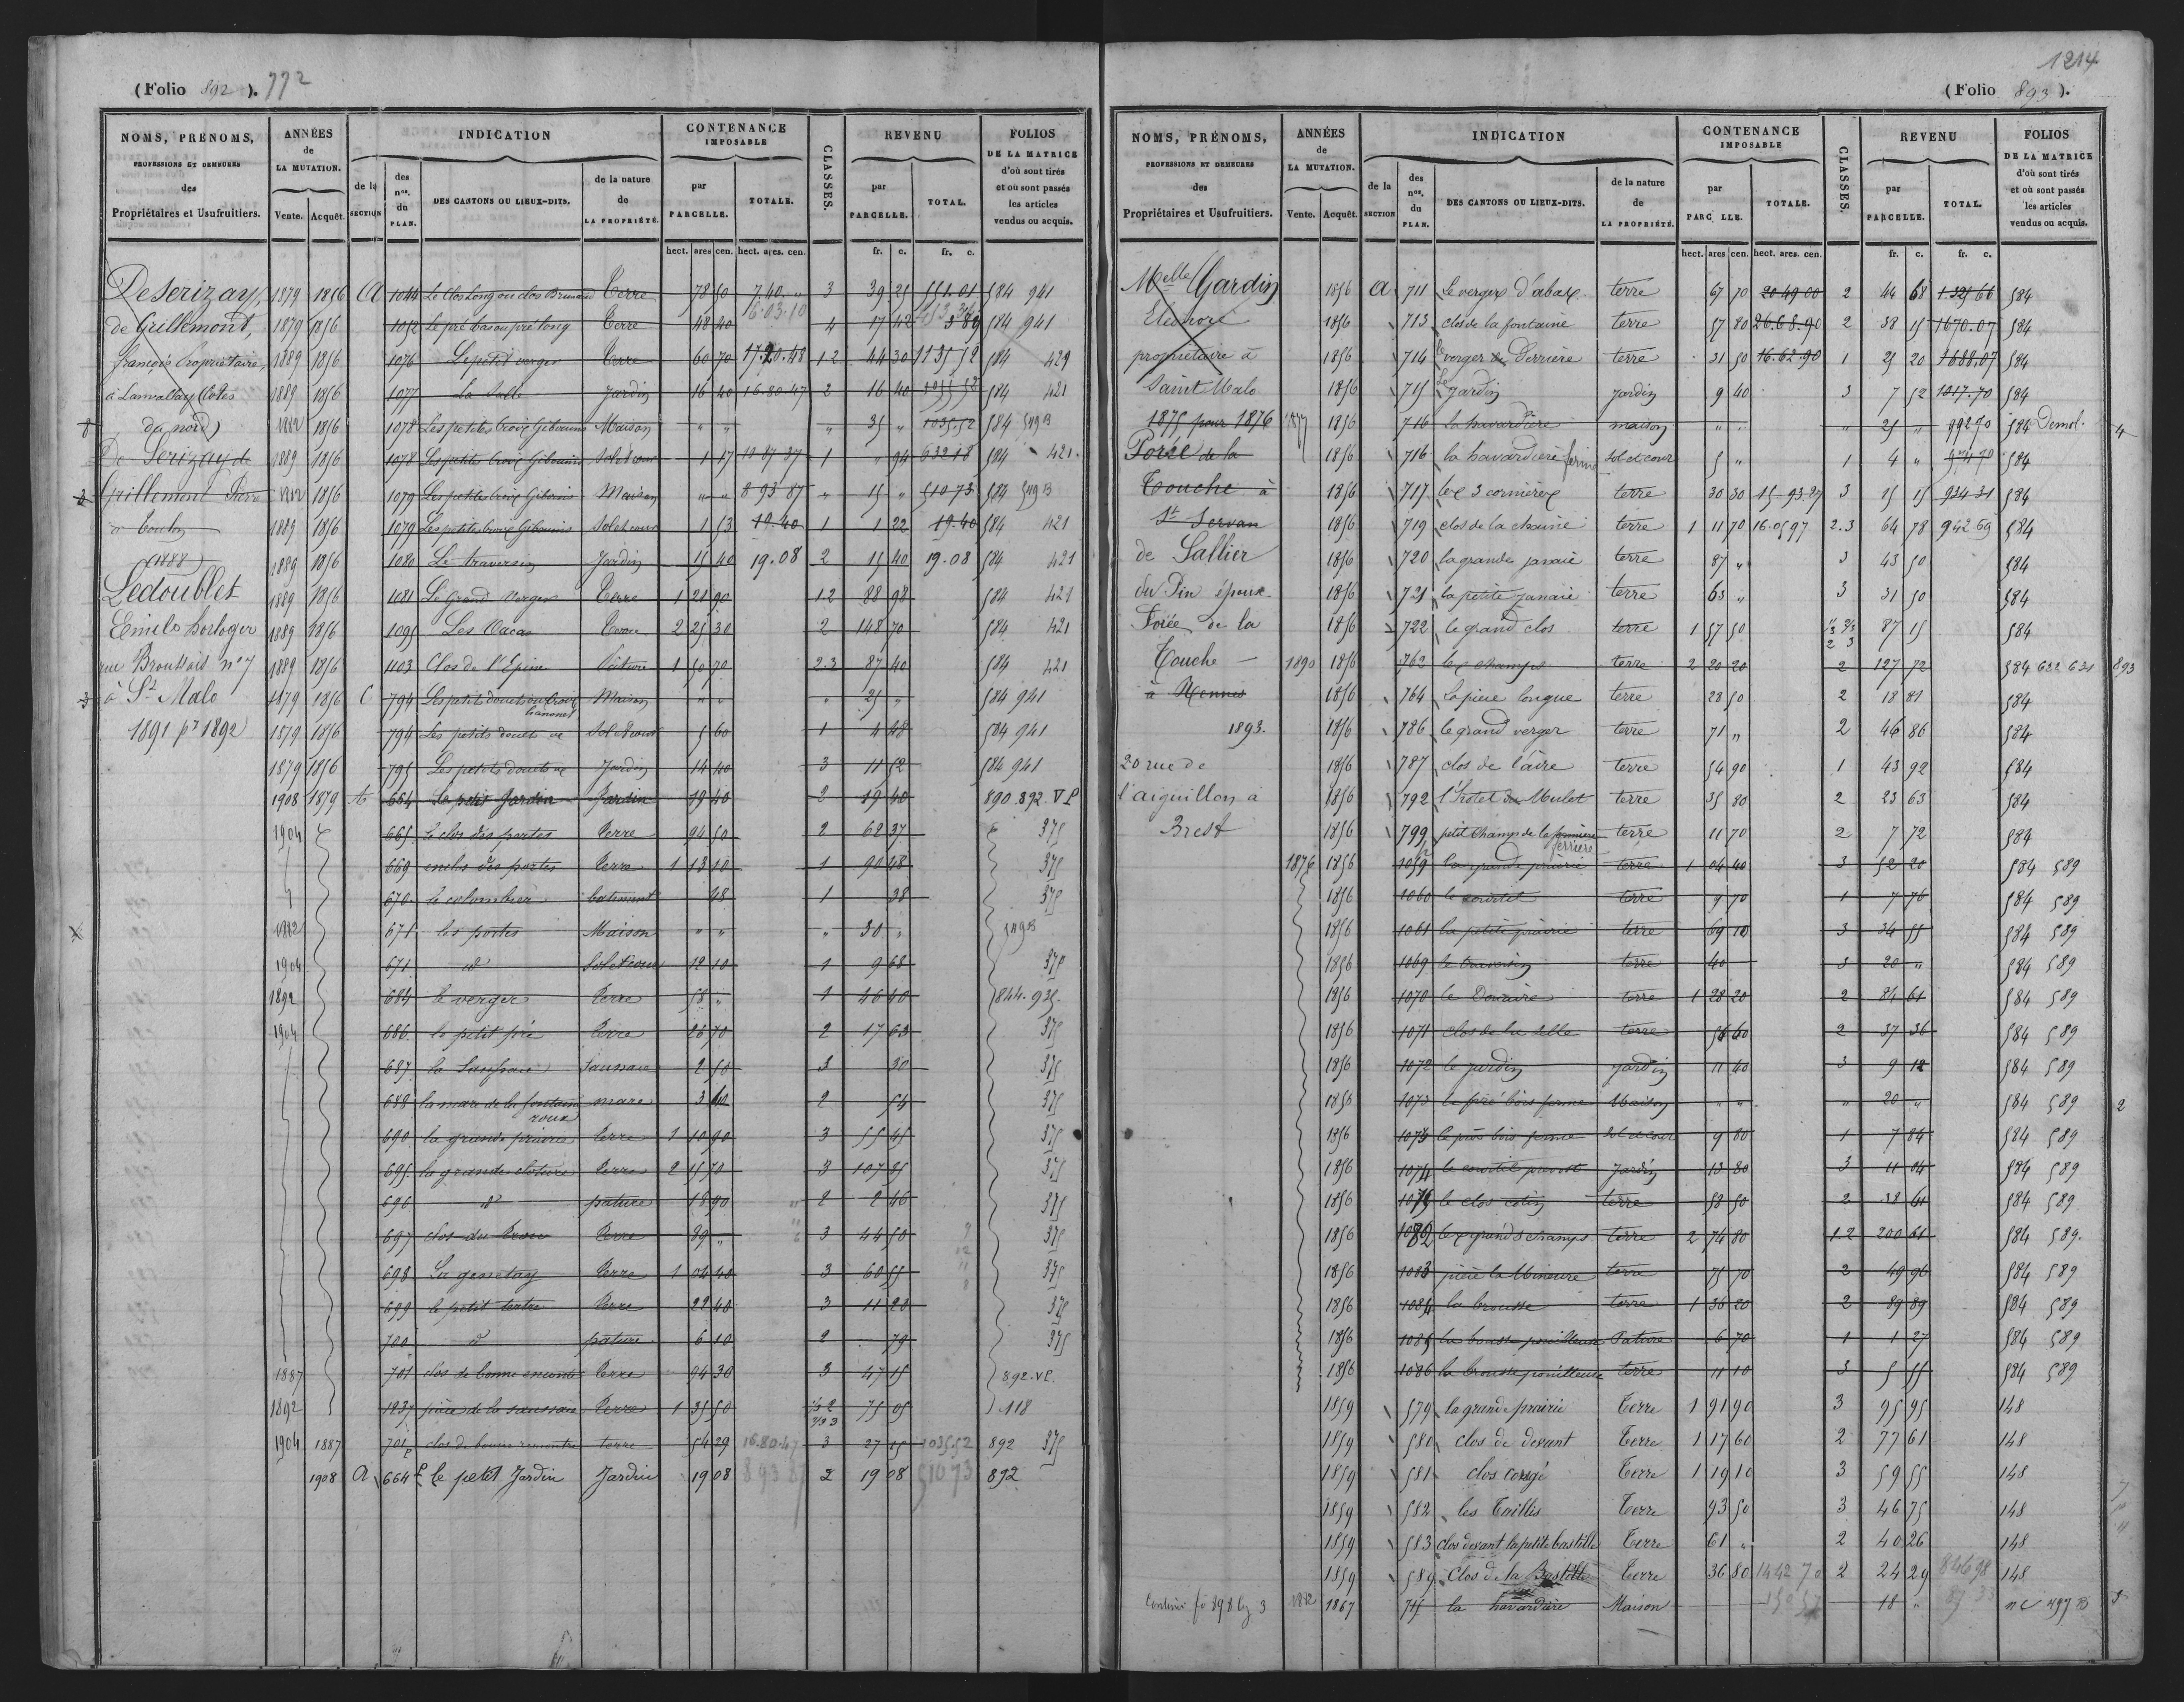 (Folio 892). 772
NOMS, PRÉNOMS, PROFESSIONS ET DEMEURES des Propriétaires et Usufruitiers.
ANNÉES de LA MUTATION. Vente. Acquêt.
INDICATION de la SECTION des nos. du PLAN. DES CANTONS OU LIEUX-DITS. de la nature de LA PROPRIÉTÉ.
CONTENANCE IMPOSABLE par PARCELLE. TOTALE.
CLASSES.
REVENU par PARCELLE. TOTAL.
FOLIOS DE LA MATRICE d'où sont tirés et où sont passés les articles vendus ou acquis.
hect. ares cen. hect. ares. cen. fr. c. fr. c.
De Serizay,
de Grillemont,
françois Propriétaire,
à Lanvallay (Côtes
du nord)
De Serizay de
Grillemont Pierre
à Toulon
(1888)
Ledoublet
Emile horloger
rue Broussais n° 7
à St Malo
1891 pr 1892
1879 1856 A 1044 Le Clos Long ou clos Brunard Terre 78 50 7.40 " 3 39 25 551.01 584 941
1879 1856 1052 Le pré bas ou pré long Terre 48 40 16.03.10 4 17 42 584 941
1889 1856 1076 Le petit verger Terre 60 70 17.20.48 1 2 44 30 1135 52 584 421
1889 1856 1077 La Salle Jardin 16 40 16.80.47 2 16 40 1035 52 584 421
1882 1856 1078 Les petites croix Gibouins Maison " " " 35 " 1035.52 584 549 B
1889 1856 1078 Les petites Croix Gibouins Sol et cour 1 17 1 " 94 632 18 584 421
1882 1856 1079 Les petites croix Gibouins Maison " " 8 93 87 " 15 " 510 73 584 549 B
1889 1856 1079 Les petites croix Gibouins Sol et cour 1 53 19.40 1 1 22 19.40 584 421
1889 1856 1080 Le traversin Jardin 15 40 19.08 2 15 40 19.08 584 421
1889 1856 1081 Le Grand Verger Terre 1 21 90 1 2 88 98 584 421
1889 1856 1095 Les Vacas Terre 2 25 30 2 148 70 584 421
1889 1856 1103 Clos de l'Epine Pâture 1 50 70 2.3 87 40 584 421
1879 1856 C 794 Les petits douets ou Croix Maison " " " 25 " 584 941
1879 1856 794 Les petits douets Sol et cour 5 60 1 4 48 584 941
1879 1856 795 Les petits douets Jardin 14 40 3 11 52 584 941
1908 1879 A 664 Le petit Jardin Jardin 19 40 2 19 40 890.892. VP
1904 665 Le clos des portes Terre 94 50 2 62 37 375
669 enclos des portes Terre 1 13 10 1 90 48 375
670 le colombier batiment 48 1 38 375
1882 671 les portes Maison " " " 30 " 549 B
1904 671 d° Sol et cour 12 10 1 9 68 375
1892 684 le verger Terre 58 " 1 46 40 844.935.
1904 686 le petit pré Terre 26 70 2 17 63 375
687 la Saussaie Saussaie 2 50 3 30 375
688 la mare de la fontaine roux mare 3 60 2 54 375
690 la grande prairie Terre 1 10 90 3 55 45 375
695 la grande cloture Terre 2 15 70 3 107 85 375
696 d° pature 18 90 2 2 46 375
697 clos du Terre 89 " 3 44 50 375
698 La genetay Terre 1 04 40 3 60 55 375
699 le petit tertre Terre 22 40 3 11 20 375
700 d° pature 6 10 2 79 375
1887 701 clos de bonne encontre Terre 94 30 3 47 15 892.VP.
1892 1237 pièce de la saussaie Terre 1 35 50 1/3 2 2/3 3 75 05 118
1904 1887 701p clos de bonne rencontre terre 54 29 16.80.47 3 27 15 1035.52 892 375
1908 A 664p Le petit Jardin Jardin 19 08 8 93 87 2 19 08 510 73 892
1214
(Folio 893).
NOMS, PRÉNOMS, PROFESSIONS ET DEMEURES des Propriétaires et Usufruitiers.
ANNÉES de LA MUTATION. Vente. Acquêt.
INDICATION de la SECTION des nos. du PLAN. DES CANTONS OU LIEUX-DITS. de la nature de LA PROPRIÉTÉ.
CONTENANCE IMPOSABLE par PARC LLE. TOTALE.
CLASSES.
REVENU par PARCELLE. TOTAL.
FOLIOS DE LA MATRICE d'où sont tirés et où sont passés les articles vendus ou acquis.
hect. ares cen. hect. ares. cen. fr. c. fr. c.
Melle Gardin
Eléonore
propriétaire à
Saint Malo
1875 pour 1876
Porée de la
Touche à
St Servan
de Sallier
du Pin épouse
Porée de la
Touche
à Rennes
1893.
20 rue de
l'aiguillon à
Brest
1856 A 711 Le verger d'abas terre 67 70 20 49 00 2 44 68 1.325 66 584
1856 713 clos de la fontaine terre 57 80 26.68.90 2 38 15 1670.07 584
1856 714 le verger de Derrière terre 31 50 16.62.90 1 25 20 1688.07 584
1856 715 Le Jardin jardin 9 40 3 7 52 1017.70 584
1877 1856 716 la havardière maison " " " 25 " 992 70 584 Demol. 4
1856 716 la havardière ferme sol et cour 5 " 1 4 " 974 70 584
1856 717 les 3 cornières terre 30 30 15.93.27 3 15 15 934 31 584
1856 719 clos de la chainie terre 1 11 70 16.05 97 2.3 64 78 942 69 584
1856 720 la grande janaie terre 87 " 3 43 50 584
1856 721 la petite janaie terre 63 " 3 31 50 584
1856 722 le grand clos terre 1 57 50 1/3 2/3 2 3 87 15 584
1890 1856 762 les champs terre 2 20 20 2 127 72 584 632 631 893
1856 764 la pièce longue terre 28 50 2 18 81 584
1856 786 le grand verger terre 71 " 2 46 86 584
1856 787 clos de l'aire terre 54 90 1 43 92 584
1856 792 l'hotel du Mulot terre 35 80 2 23 63 584
1856 799 petit champs de la ferrière terre 11 70 2 7 72 584
1876 1856 1059 la grande prairie terre 1 04 40 3 52 20 584 589
1856 1060 le courtil terre 9 70 1 7 76 584 589
1856 1061 la petite prairie terre 69 10 3 34 55 584 589
1856 1069 le traversin terre 40 3 20 " 584 589
1856 1070 le Douaire terre 1 28 20 2 84 61 584 589
1856 1071 clos de la salle terre 56 60 2 37 36 584 589
1856 1072 le jardin jardin 11 40 3 9 12 584 589
1856 1073 le pré bois ferme Maison " " " 20 " 584 589 2
1856 1073 le pré bois ferme Sol et cour 9 80 1 7 84 584 589
1856 1074 le courtil jardin 13 80 3 11 04 584 589
1856 1075 le clos cotin terre 58 50 2 38 61 584 589
1856 1082 les grands champs terre 2 74 80 1.2 200 61 584 589.
1856 1083 pièce la Mineure terre 75 70 2 49 96 584 589
1856 1084 la brousse terre 1 36 20 2 89 89 584 589
1856 1085 la brousse pouilleuse Pature 6 70 1 1 27 584 589
1856 1086 la brousse pouilleuse terre 11 10 3 5 55 584 589
1859 579 la grande prairie Terre 1 91 90 3 95 95 148
1859 580 clos de devant Terre 1 17 60 2 77 61 148
1859 581 clos corsgé Terre 1 19 10 3 59 55 148
1859 582 les Taillis Terre 93 50 3 46 75 148
1859 583 clos devant la petite bastille Terre 61 " 2 40 26 148
1859 589 Clos de la Bastille Terre 36 80 14 42 70 2 24 29 846 98 148
Continué fo 898 1882 1867 715 la havardière Maison 18 " nc 497 B